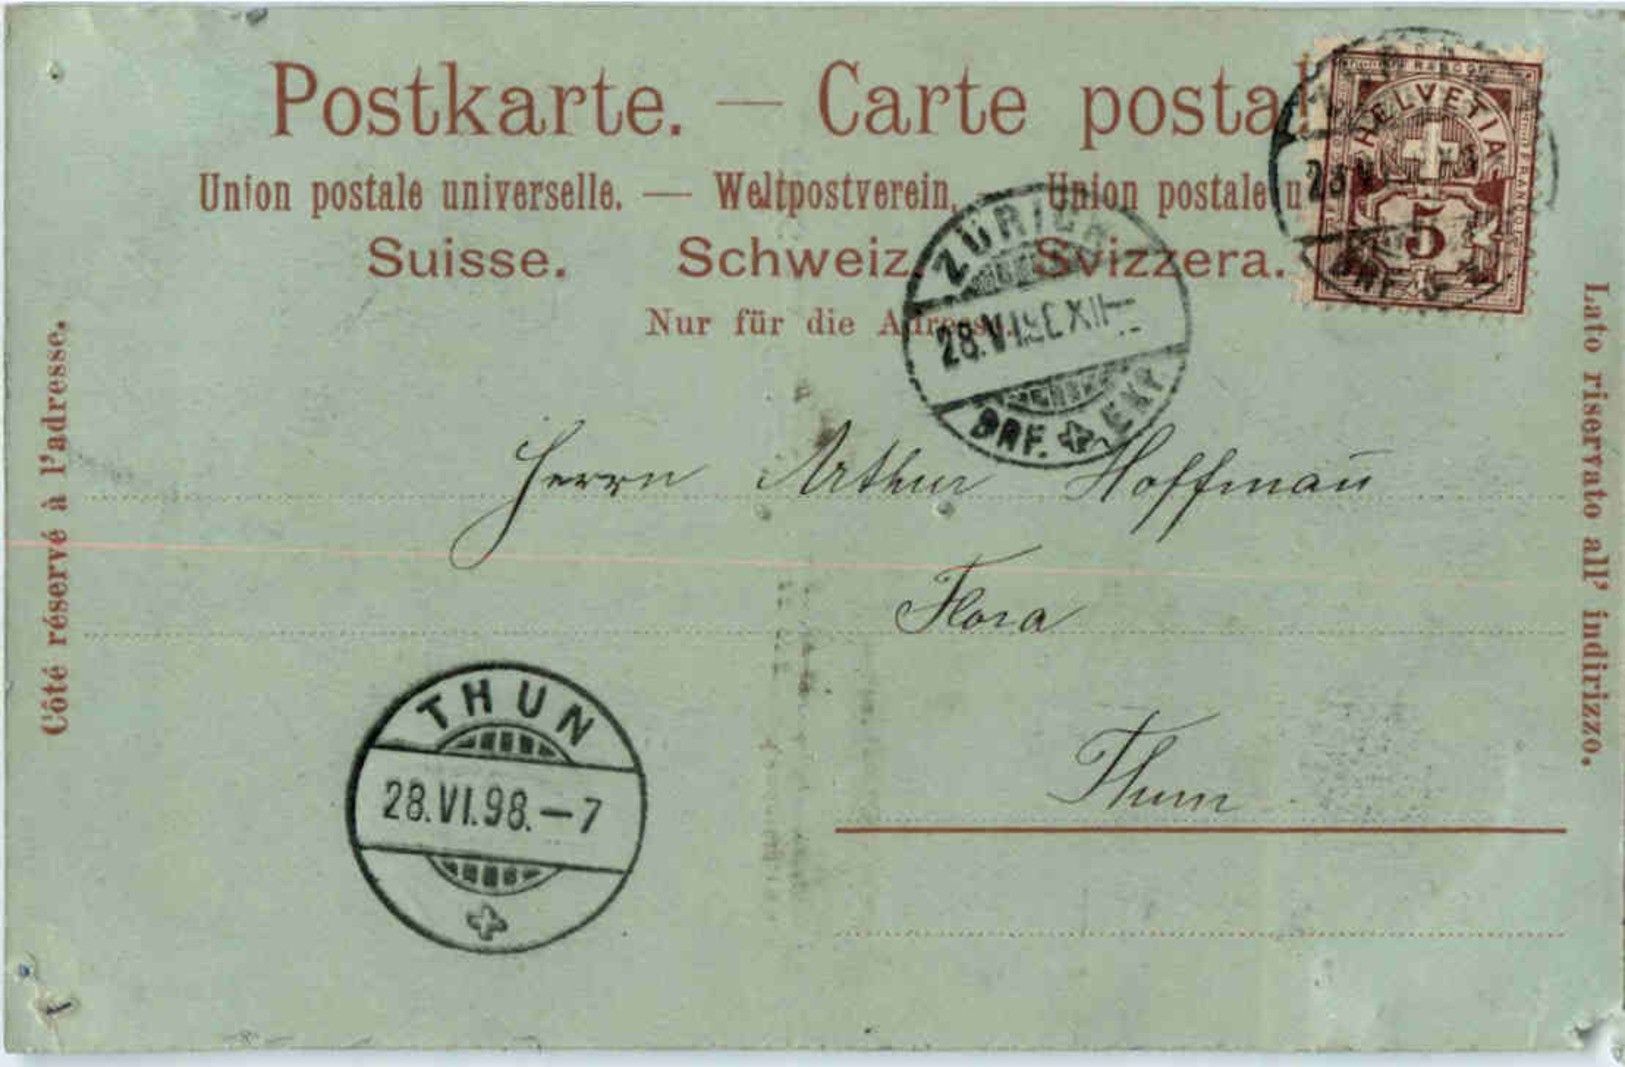 Postkarte. — Carte postal
Union postale universelle. — Weltpostverein. — Union postale u
Suisse. Schweiz. Svizzera.
Nur für die Adresse.
Côté réservé à l'adresse.
Lato riservato all' indirizzo.
FRANCO
HELVETIA
5
ZÜRICH
28.VI.98.XII-
BRF. EXP.
Herrn Arthur Hoffmañ
Flora
Thun
THUN
28.VI.98.-7